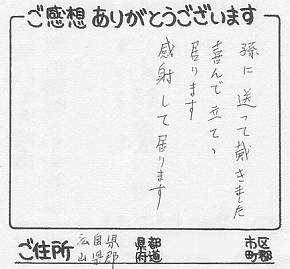 ご感想ありがとうございます
孫に送って戴きました
喜んで立てゝ
居ります
感射して居ります
ご住所
県都
府道
市区
町郡